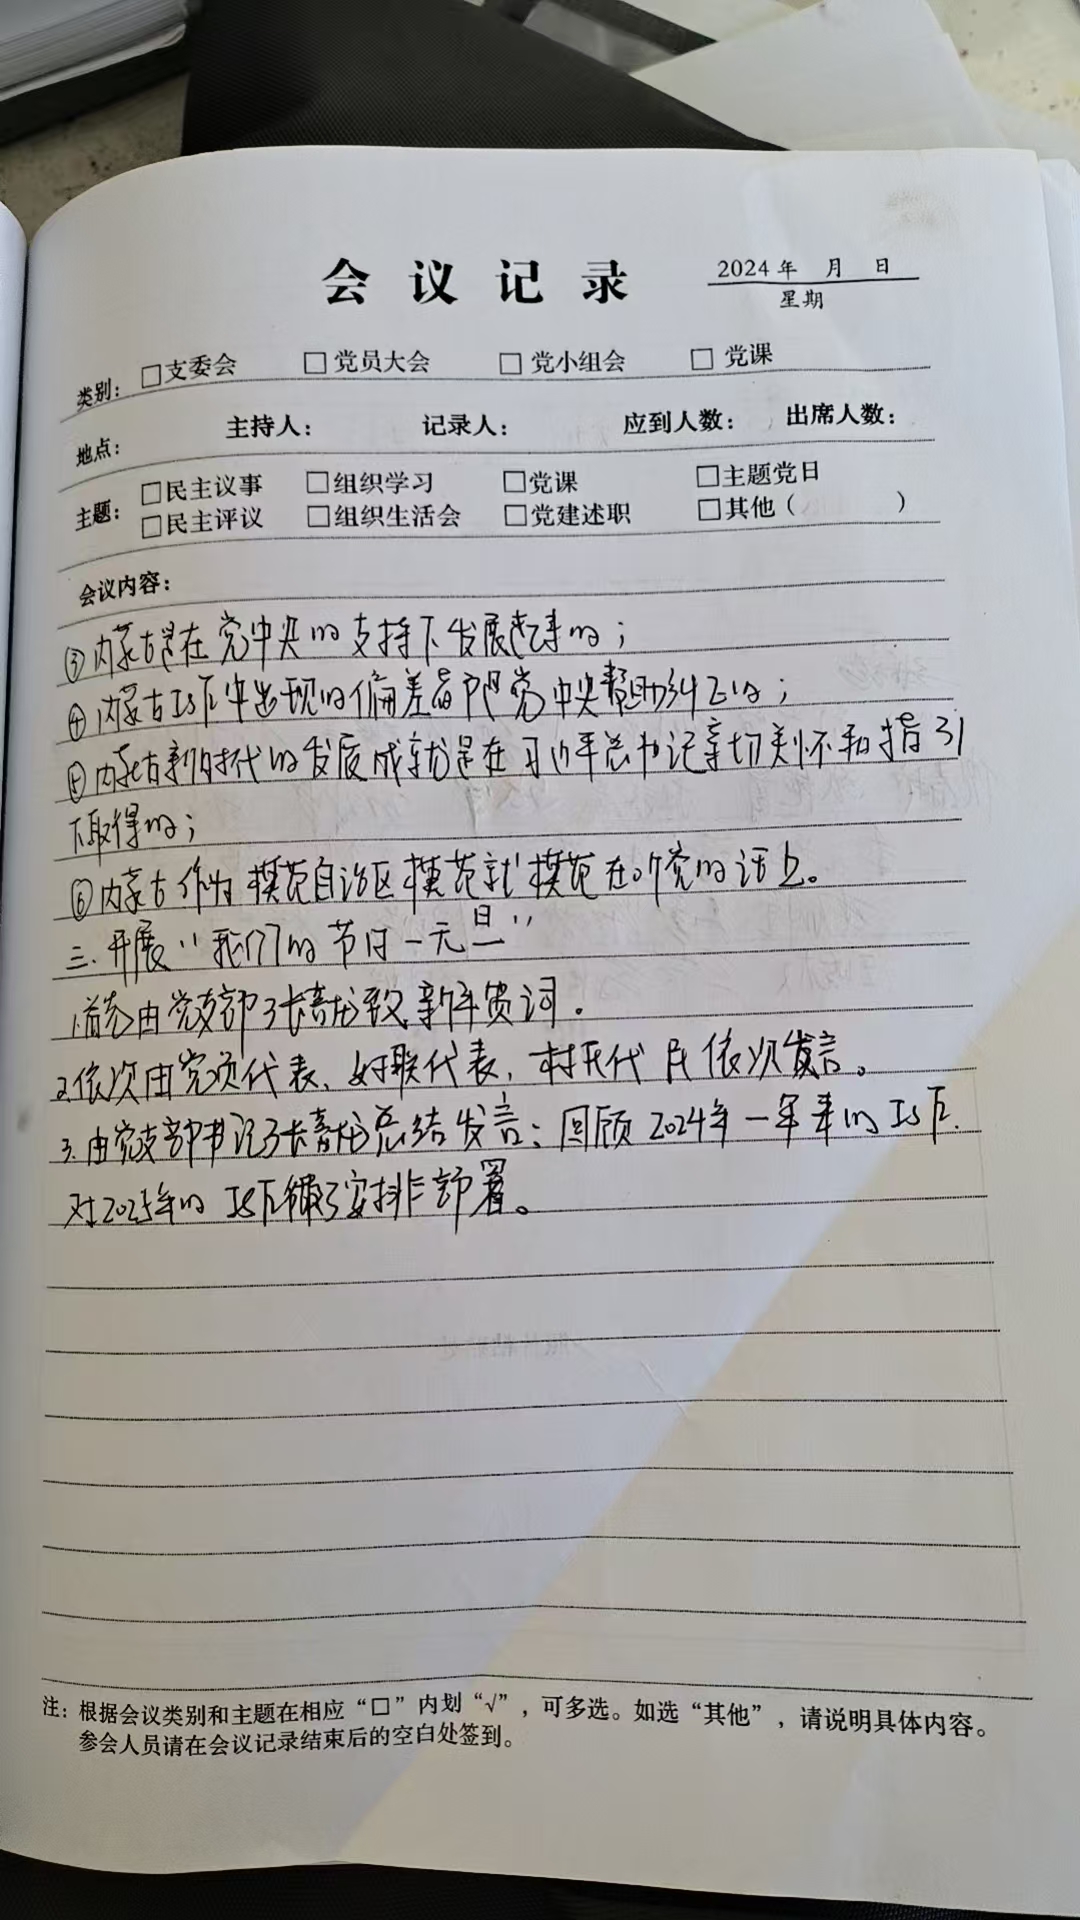 会议记录
2024年 月 日
星期
类别： □支委会 □党员大会 □党小组会 □党课
地点： 主持人： 记录人： 应到人数： 出席人数：
主题： □民主议事 □组织学习 □党课 □主题党日
□民主评议 □组织生活会 □党建述职 □其他（ ）
会议内容：
③内蒙古是在党中央的支持下发展起来的；
④内蒙古工作中出现的偏差都是党中央帮助纠正的；
⑤内蒙古新时代的发展成就是在习近平总书记亲切关怀和指引
下取得的；
⑥内蒙古作为模范自治区模范就模范在听党的话上。
三.开展“我们的节日—元旦”
1.首先由党支部 张春龙致新年贺词。
2.依次由党员代表、妇联代表，村民代 依次发言。
3.由党支部书记张春龙总结发言：回顾2024年一年来的工作.
对2025年的工作做了安排部署。
注：根据会议类别和主题在相应“□”内划“√”，可多选。如选“其他”，请说明具体内容。
参会人员请在会议记录结束后的空白处签到。